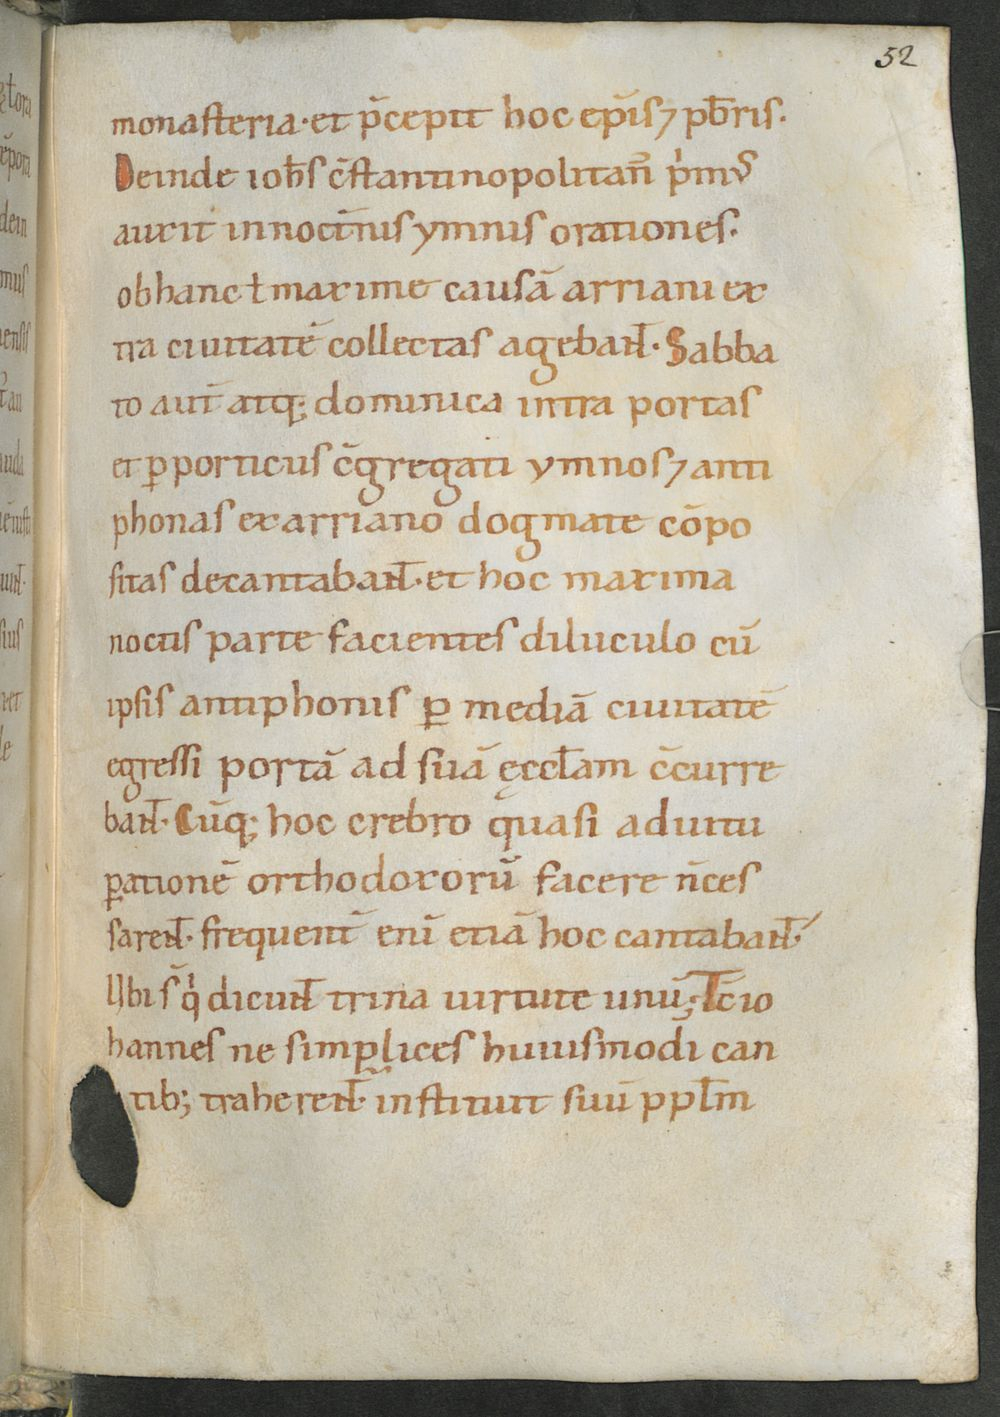 52
monasteria·et p̄cepit hoc ep̄is⁊ pb̄ris·
Deinde ioh̄s c̄stantinopolitan̄ p̓mꝰ
auxit innoct̄nis ymnis orationes·
ob hanc ł maxime causā arriani ex
tra ciuitatē collectas agebant̄· Sabba
to aut̄ atq; dominica intra portas
et ꝑ porticus c̄gregati ymnos⁊ anti
phonas ex arriano dogmate cōpo
sitas decantabant̄· et hoc maxima
noctis parte facientes diluculo cū
ipsis antiphonis ꝑ mediā ciuitatē
egressi portā ad suā ęccl̄am c̄curre
bant̄· Cūq; hoc crebro quasi aduitu
ꝑationē orthodoxorū facere n̄ces
sarent̄· frequent̄ enī etiā hoc cantabant̄·
Ubi s̄ q̓ dicunt̄ trina uirtute unū; Tc̄ io
hannes ne simplices huiusmodi can
tib; traherent̄· instituit suū ppl̄m